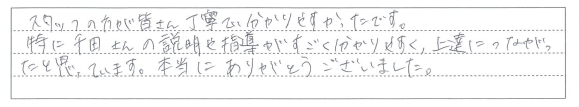 スタッフの方が皆さん丁寧でい分かりやすかったです。
特に千田さんの説明や指導がすごく分かりやすく、上達につながっ
たと思っています。本当にありがとうございました。